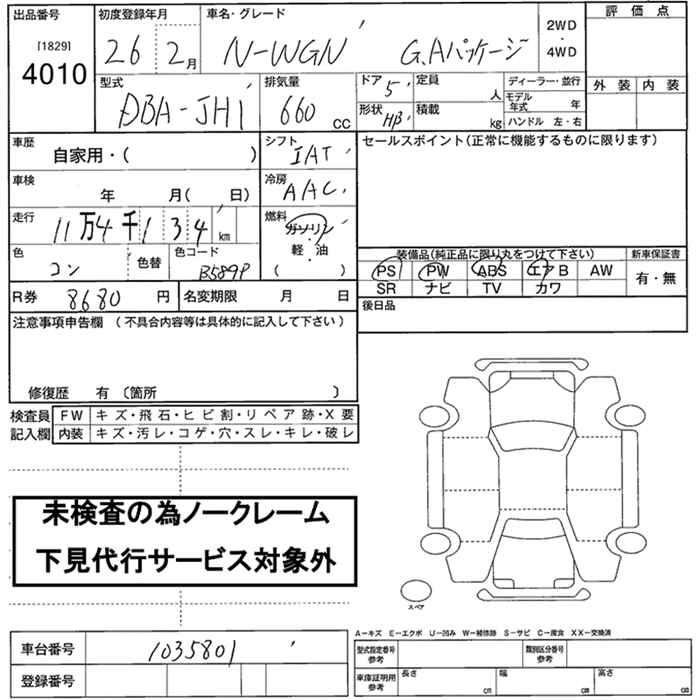 出品番号 初度登録年月 車名・グレード 評価点
[1829] 26 2月 N-WGN G.Aパッケージ 2WD・4WD 外装 内装
4010
型式 排気量 ドア 5 定員 人 ディーラー・並行
DBA-JH1 660cc 形状 HB 積載 kg モデル年式 年
ハンドル 左・右
車歴 自家用・( ) シフト IAT セールスポイント(正常に機能するものに限ります)
車検 年 月( 日) 冷房 AAC
走行 11万4千134km 燃料 ガソリン
軽・油
( )
色 コン 色替 色コード B589P
装備品(純正品に限り丸をつけて下さい) 新車保証書
PS PW ABS エアB AW 有・無
SR ナビ TV カワ
R券 8680円 名変期限 月 日 後日品
注意事項申告欄 (不具合内容等は具体的に記入して下さい)
修復歴 有 (箇所 )
検査員 FW キズ・飛石・ヒビ割・リペア跡・X要
記入欄 内装 キズ・汚レ・コゲ・穴・スレ・キレ・破レ
未検査の為ノークレーム
下見代行サービス対象外
スペア
A−キズ E−エクボ U−凹み W−補修跡 S−サビ C−腐食 XX−交換済
車台番号 1035801 型式指定番号 参考 類別区分番号 参考
登録番号 車庫証明用 参考 長さ cm 幅 cm 高さ cm